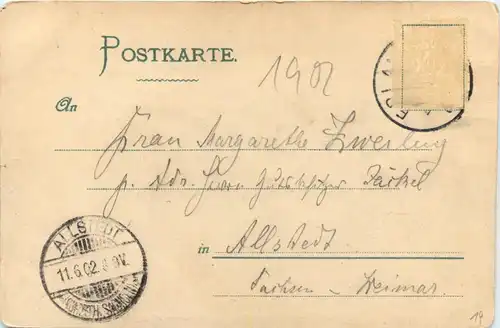 POSTKARTE.
1902
An
Frau Margarethe Zwerling
p. Adr. Herrn Gutsbesitzer Jäckel
in Allstedt
Sachsen - Weimar.
ALLSTEDT
11.6.02
19